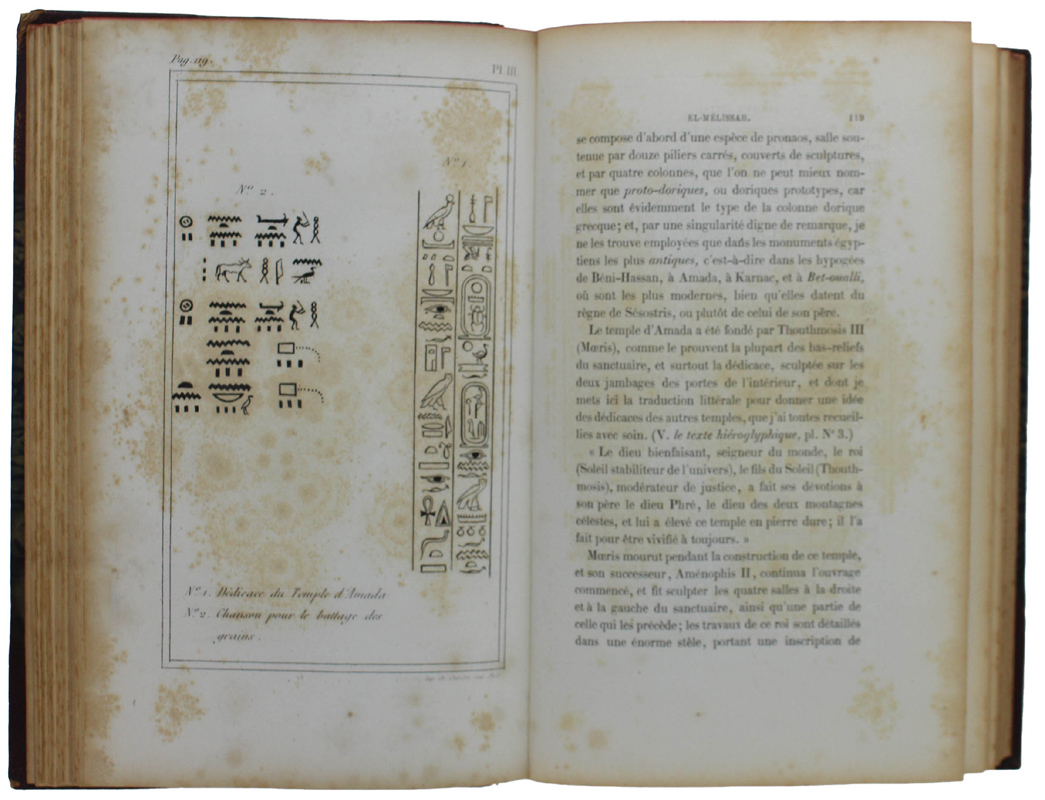 Pag. 119.
Pl. III
N.º 1.
N.º 2.
N.º 1. Dédicace du Temple d'Amada
N.º 2. Chanson pour le battage des
grains.
EL-MÉLISSAH. 119
se compose d'abord d'une espèce de pronaos, salle sou-
tenue par douze piliers carrés, couverts de sculptures,
et par quatre colonnes, que l'on ne peut mieux nom-
mer que proto-doriques, ou doriques prototypes, car
elles sont évidemment le type de la colonne dorique
grecque; et, par une singularité digne de remarque, je
ne les trouve employées que dans les monuments égyp-
tiens les plus antiques, c'est-à-dire dans les hypogées
de Béni-Hassan, à Amada, à Karnac, et à Bet-oualli,
où sont les plus modernes, bien qu'elles datent du
règne de Sésostris, ou plutôt de celui de son père.
Le temple d'Amada a été fondé par Thouthmosis III
(Mœris), comme le prouvent la plupart des bas-reliefs
du sanctuaire, et surtout la dédicace, sculptée sur les
deux jambages des portes de l'intérieur, et dont je
mets ici la traduction littérale pour donner une idée
des dédicaces des autres temples, que j'ai toutes recueil-
lies avec soin. (V. le texte hiéroglyphique, pl. N° 3.)
« Le dieu bienfaisant, seigneur du monde, le roi
(Soleil stabiliteur de l'univers), le fils du Soleil (Thouth-
mosis), modérateur de justice, a fait ses dévotions à
son père le dieu Phré, le dieu des deux montagnes
célestes, et lui a élevé ce temple en pierre dure; il l'a
fait pour être vivifié à toujours. »
Mœris mourut pendant la construction de ce temple,
et son successeur, Aménophis II, continua l'ouvrage
commencé, et fit sculpter les quatre salles à la droite
et à la gauche du sanctuaire, ainsi qu'une partie de
celle qui les précède; les travaux de ce roi sont détaillés
dans une énorme stèle, portant une inscription de